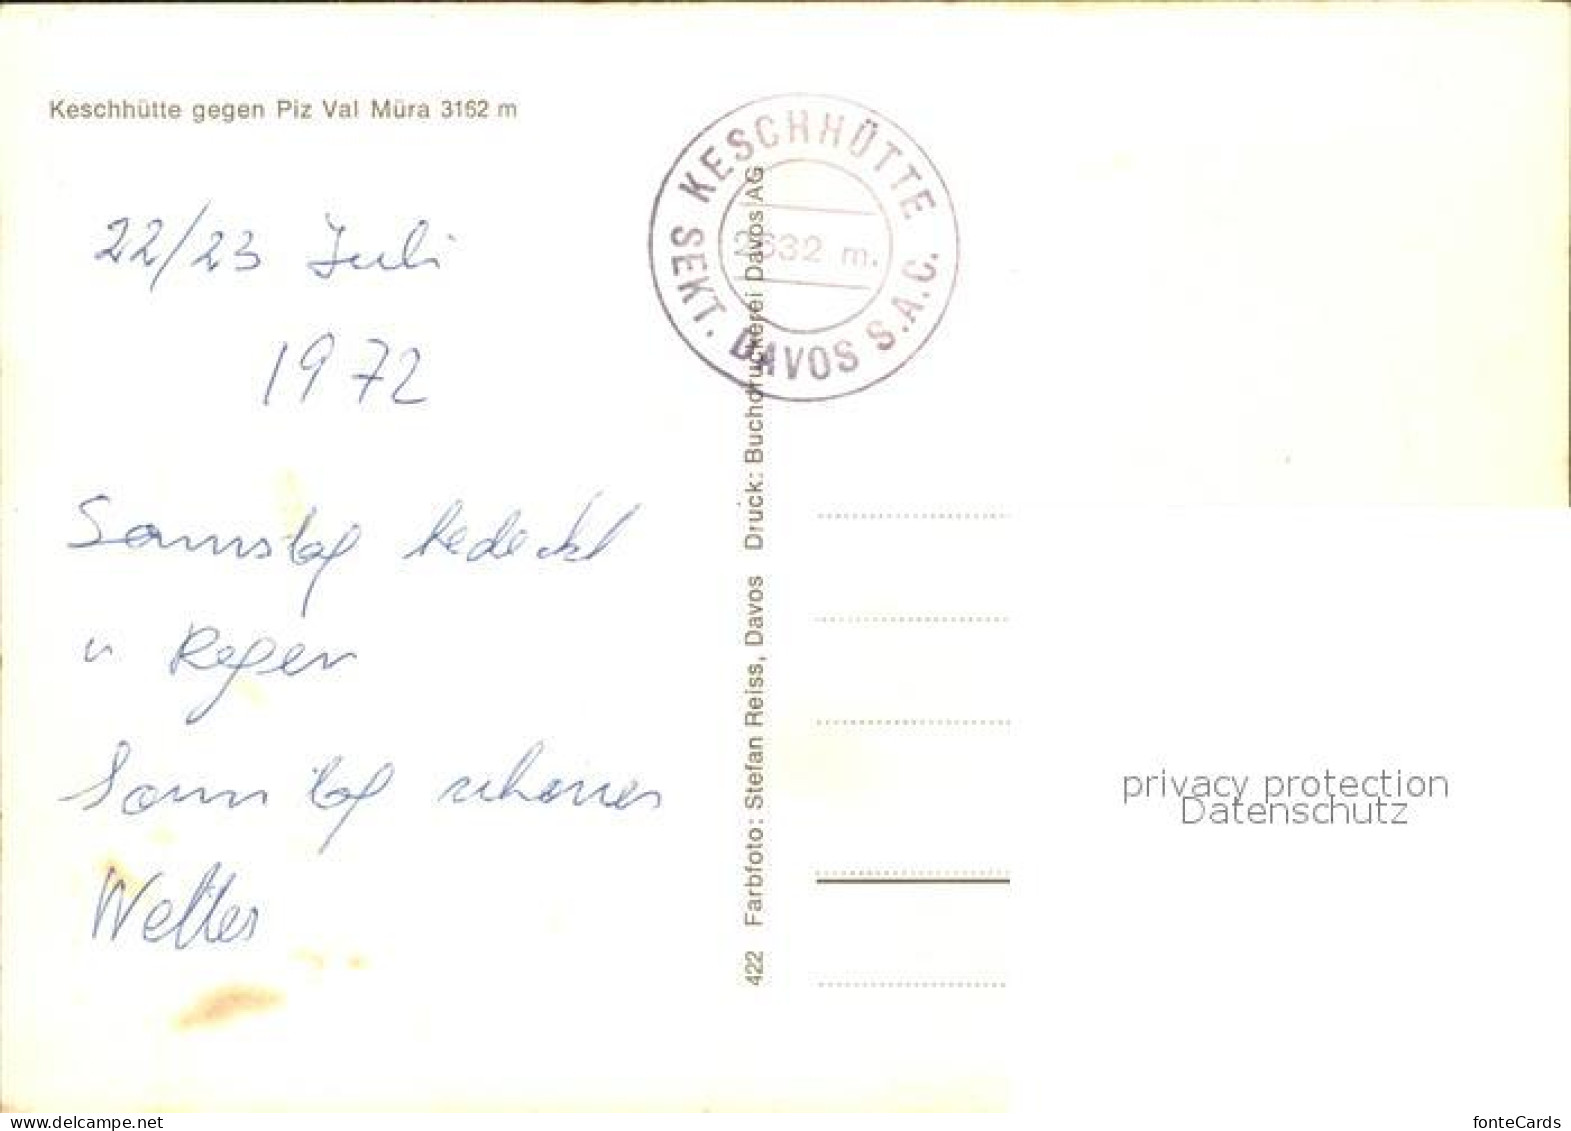 Keschhütte gegen Piz Val Müra 3162 m
KESCHHÜTTE
2632 m.
SEKT. DAVOS S.A.C.
22/23 Juli
1972
Samstag bedeckt
u Regen
Sonntag schönes
Wetter
422 Farbfoto: Stefan Reiss, Davos Druck: Buchdruckerei Davos AG
privacy protection
Datenschutz
delcampe.net
fonteCards